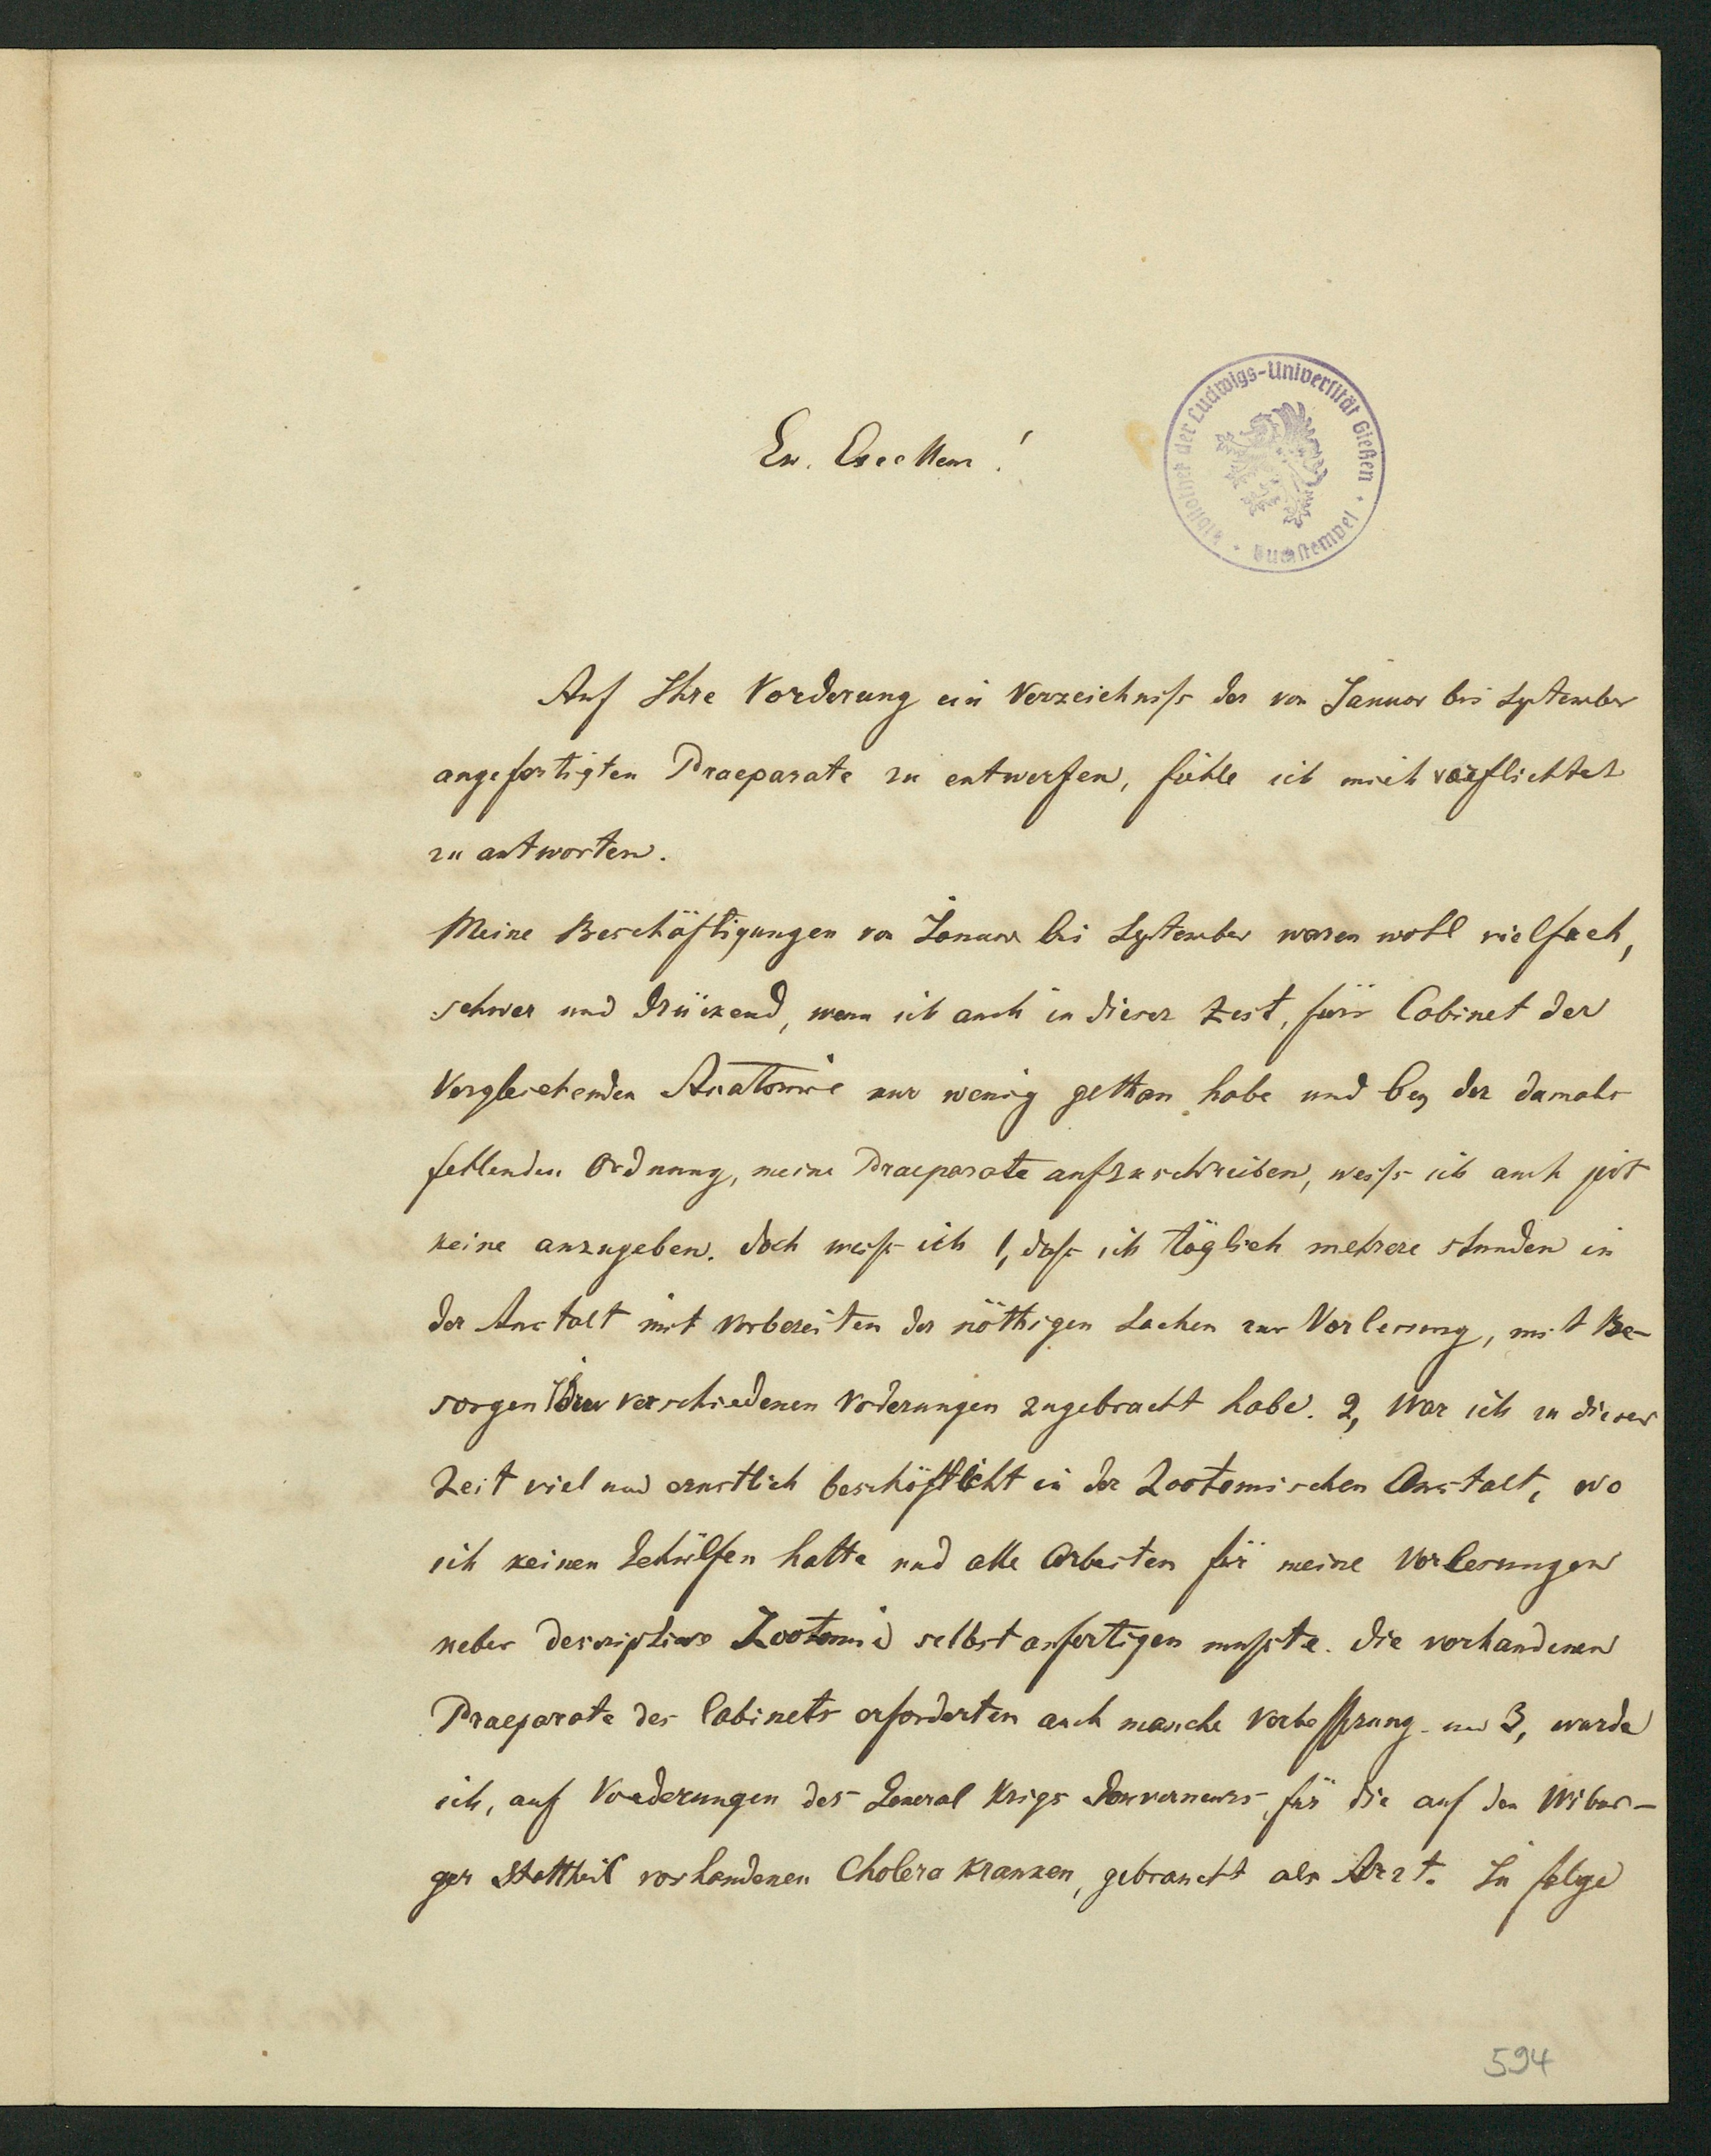 Ew. Excellenz!
Bibliothek der Ludwigs-Universität Gießen · Buchstempel ·
Auf Ihre Vorderung ein Verzeichniss der von Januar bis September
angefertigten Praeparate zu entwerfen, fühle ich mich verpflichtet
zu antworten.
Meine Beschäftigungen von Januar bis September waren wohl vielfach,
schwer und drükend, wenn ich auch in dieser Zeit, fürs Cabinet der
Vergleichenden Anatomie nur wenig gethan habe und bey der damals
fehlenden Ordnung, meine Praeparate aufzuschreiben, weiss ich auch jezt
keine anzugeben. Doch weiss ich 1, dass ich täglich mehrere stunden in
der Anstalt mit Vorbereiten der nöthigen Sachen zur Vorlesung, mit Be-
sorgen der verschiedenen Voderungen zugebracht habe. 2, War ich zu dieser
Zeit viel und ernstlich beschäfticht in der Zootomischen Anstalt, wo
ich keinen Gehülfen hatte und alle Arbeiten für meine Vorlesungen
ueber descriptive Zootomie selbst anfertigen musste. Die vorhandenen
Praeparate des Cabinets erforderten auch manche Verbesserung und 3, wurde
ich, auf Voederungen des General Krigs Gouverneurs, für die auf den Wibur-
ger Stattheil vorhandenen Cholera kranken, gebraucht als Arzt. In folge
594